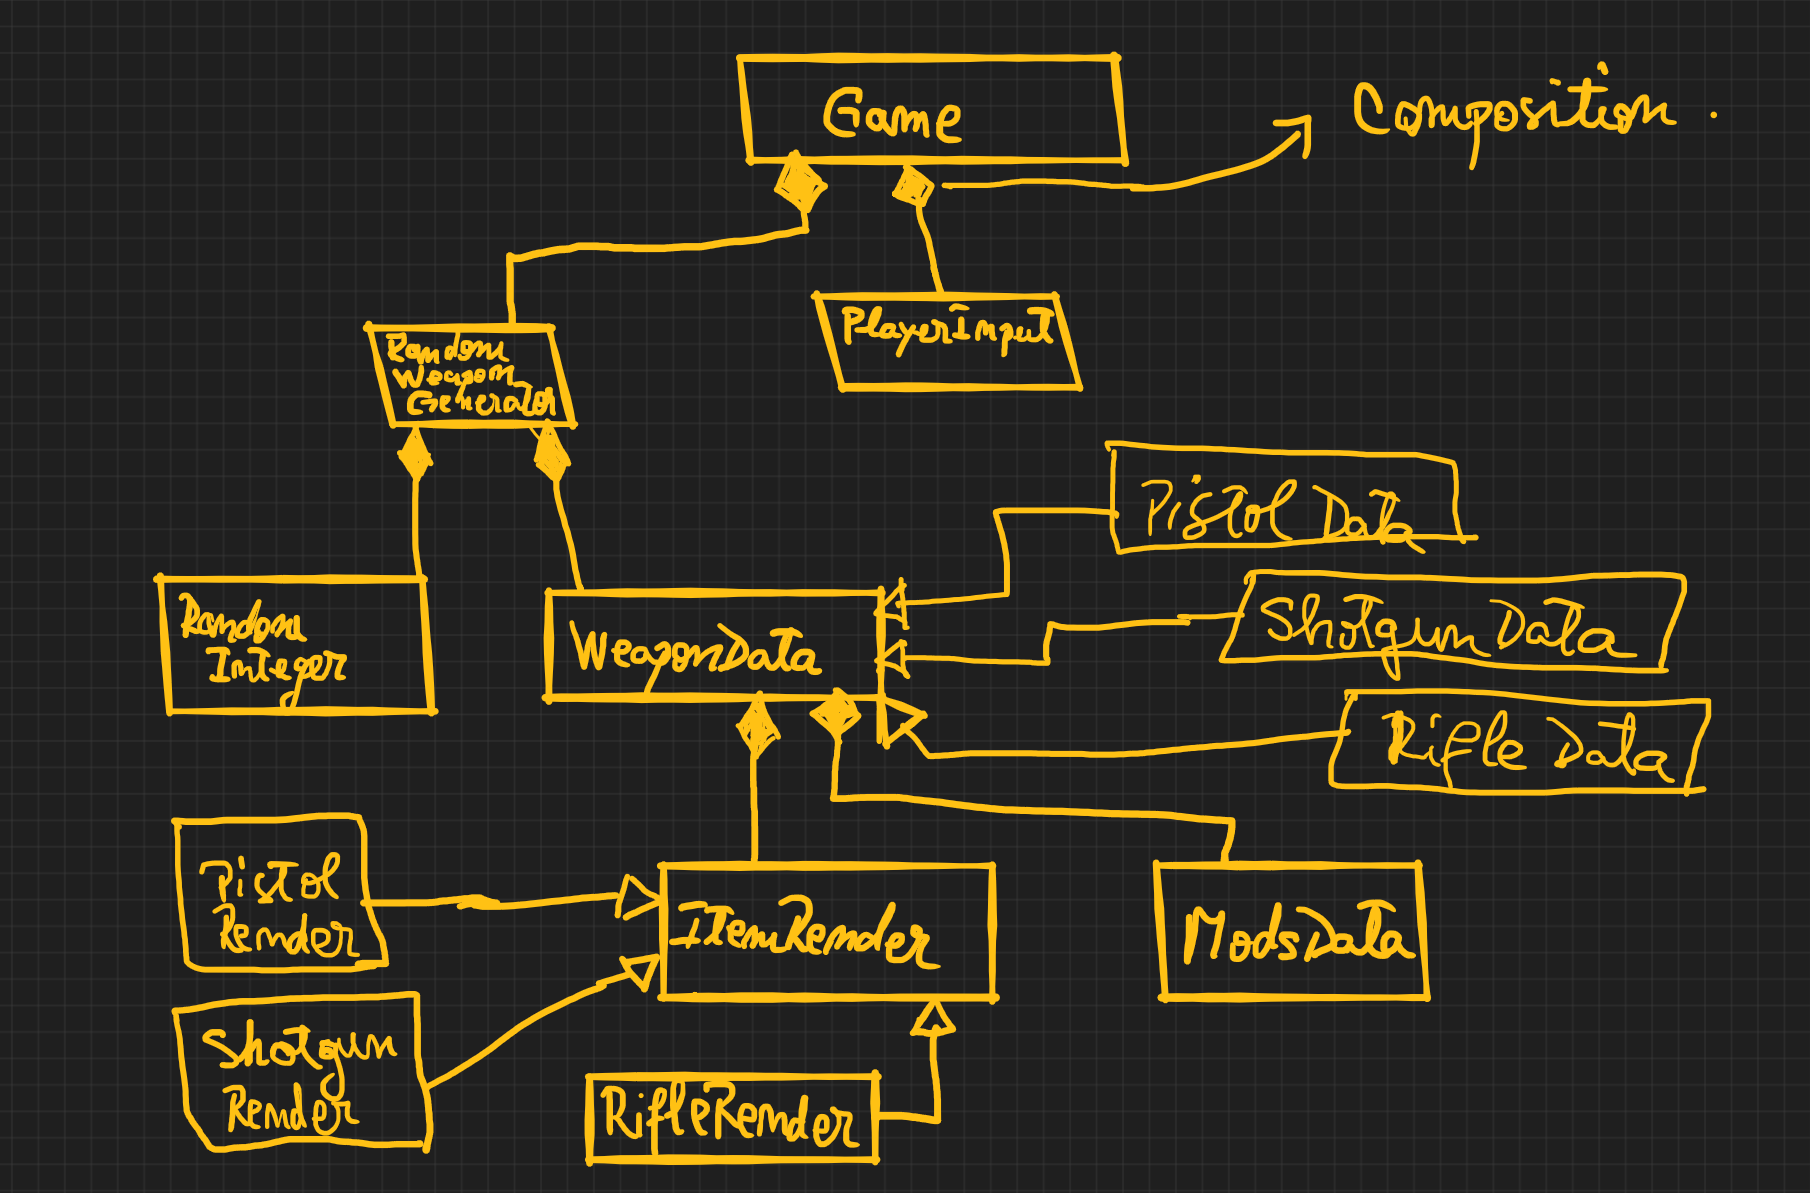 Game
Composition.
PlayerInput
Random
Weapon
Generator
Pistol Data
Shotgun Data
Random
Integer
WeaponData
Rifle Data
Pistol
Render
ItemRender
ModsData
Shotgun
Render
RifleRender